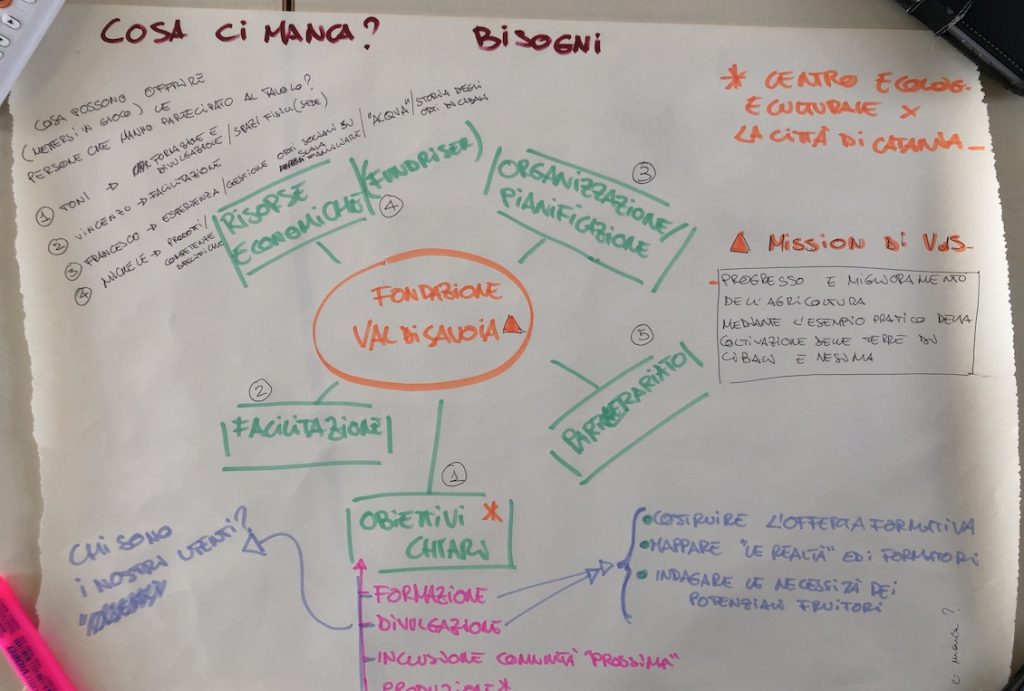 COSA CI MANCA?
BISOGNI
COSA POSSONO OFFRIRE
(METERSI IN GIOCO) LE
PERSONE CHE HANNO PARTECIPATO AL TAVOLO?
① TONI → FORMAZIONE E
DIVULGAZIONE / SPAZI FISICI (SEDE)
② VINCENZO → FACILITAZIONE
③ FRANCESCO → ESPERIENZA / GESTIONE ORTI SOCIALI SU
SCALA FAMILIARE / "ACQUA" / STORIA DEGLI
ORTI DI CIBALI
④ MICHELE → PRODOTTI /
COMPETENZE
SPECIFICHE
* CENTRO ECOLOG.
E CULTURALE X
LA CITTÀ DI CATANIA
▲ MISSION DI VdS.
PROGRESSO E MIGLIORAMENTO
DELL'AGRICOLTURA
MEDIANTE L'ESEMPIO PRATICO DELLA
COLTIVAZIONE DELLE TERRE DI
CIBALI E NESIMA
RISOPSE
ECONOMICHE
(FUNDRISER)
④
③
ORGANIZZAZIONE/
PIANIFICAZIONE
FONDAZIONE
VAL DI SAVOIA ▲
⑤
PARTNERARIATO
②
FACILITAZIONE
①
OBIETTIVI *
CHIARI
CHI SONO
I NOSTRI UTENTI?
FORMAZIONE
DIVULGAZIONE
INCLUSIONE COMUNITÀ "PROSSIMA"
PRODUZIONE*
• COSTRUIRE L'OFFERTA FORMATIVA
• MAPPARE "LE REALTÀ" ED I FORMATORI
• INDAGARE LE NECESSIZÀ DEI
POTENZIALI FRUITORI
manca?